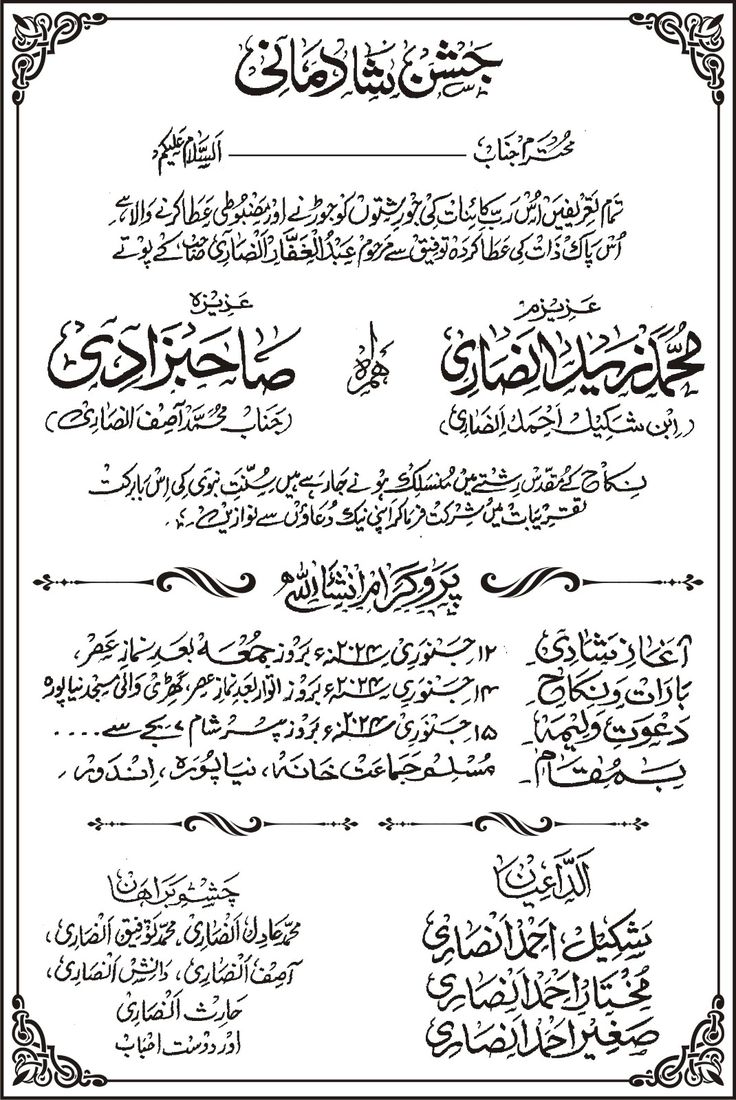 جشن شادمانی
محترم جناب ــــــــــــــــــــ السلام علیکم
تمام تعریفیں اُس ربِ کائنات کی جو رشتوں کو جوڑنے اور مضبوطی عطا کرنے والا ہے
اُس پاک ذات کی عطا کردہ توفیق سے مرحوم عبدالغفار انصاری صاحب کے پوتے
عزیزم
محمد زید انصاری
(ابن شکیل احمد انصاری)
ہمراہ
عزیزہ
صاحبزادی
(جناب محمد آصف انصاری)
نکاح کے مقدس رشتے میں منسلک ہونے جا رہے ہیں سنت نبوی کی اس بابرکت
تقریبات میں شرکت فرما کر اپنی نیک دعاؤں سے نوازیں۔
پروگرام انشاءاللہ
آغازِ شادی۔ ۱۲ جنوری ۲۰۲۴ء بروز جمعہ بعد نمازِ عصر،
بارات و نکاح۔ ۱۴ جنوری ۲۰۲۴ء بروز اتوار بعد نمازِ عصر، گھڑی والی مسجد نیاپورہ
دعوتِ ولیمہ۔ ۱۵ جنوری ۲۰۲۴ء بروز پیر شام ۷ بجے سے ....
بمقام۔ مسلم جماعت خانہ، نیاپورہ، اندور،
الداعیان
شکیل احمد انصاری
مختار احمد انصاری
صغیر احمد انصاری
چشم براہان
محمد عادل انصاری، محمد توفیق انصاری،
آصف انصاری، دانش انصاری،
حارث انصاری
اور دوست احباب